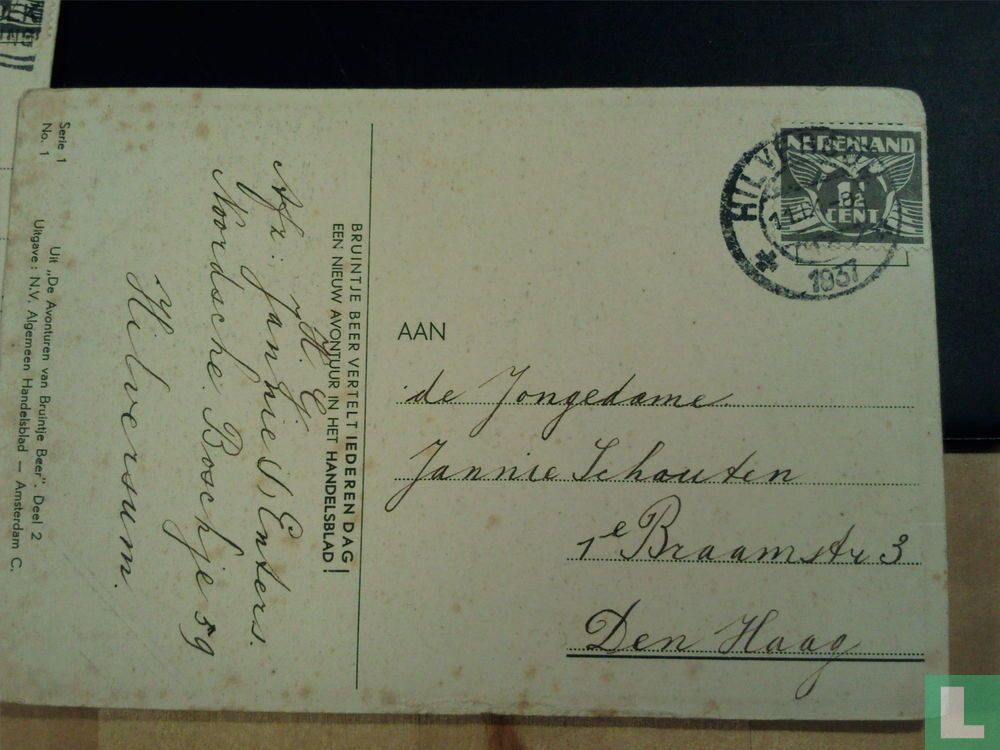 Serie 1
No. 1
Uit „De Avonturen van Bruintje Beer". Deel 2
Uitgave: N.V. Algemeen Handelsblad — Amsterdam C.
BRUINTJE BEER VERTELT IEDEREN DAG
EEN NIEUW AVONTUUR IN HET HANDELSBLAD!
Afz: Jannie S. Enters.
H. C.
Noordsche Boschje 59
Hilversum.
NEDERLAND
1½
CENT
HILV
1937
AAN
de Jongedame
Jannie Schouten
1e Braamstr 3
Den Haag
L